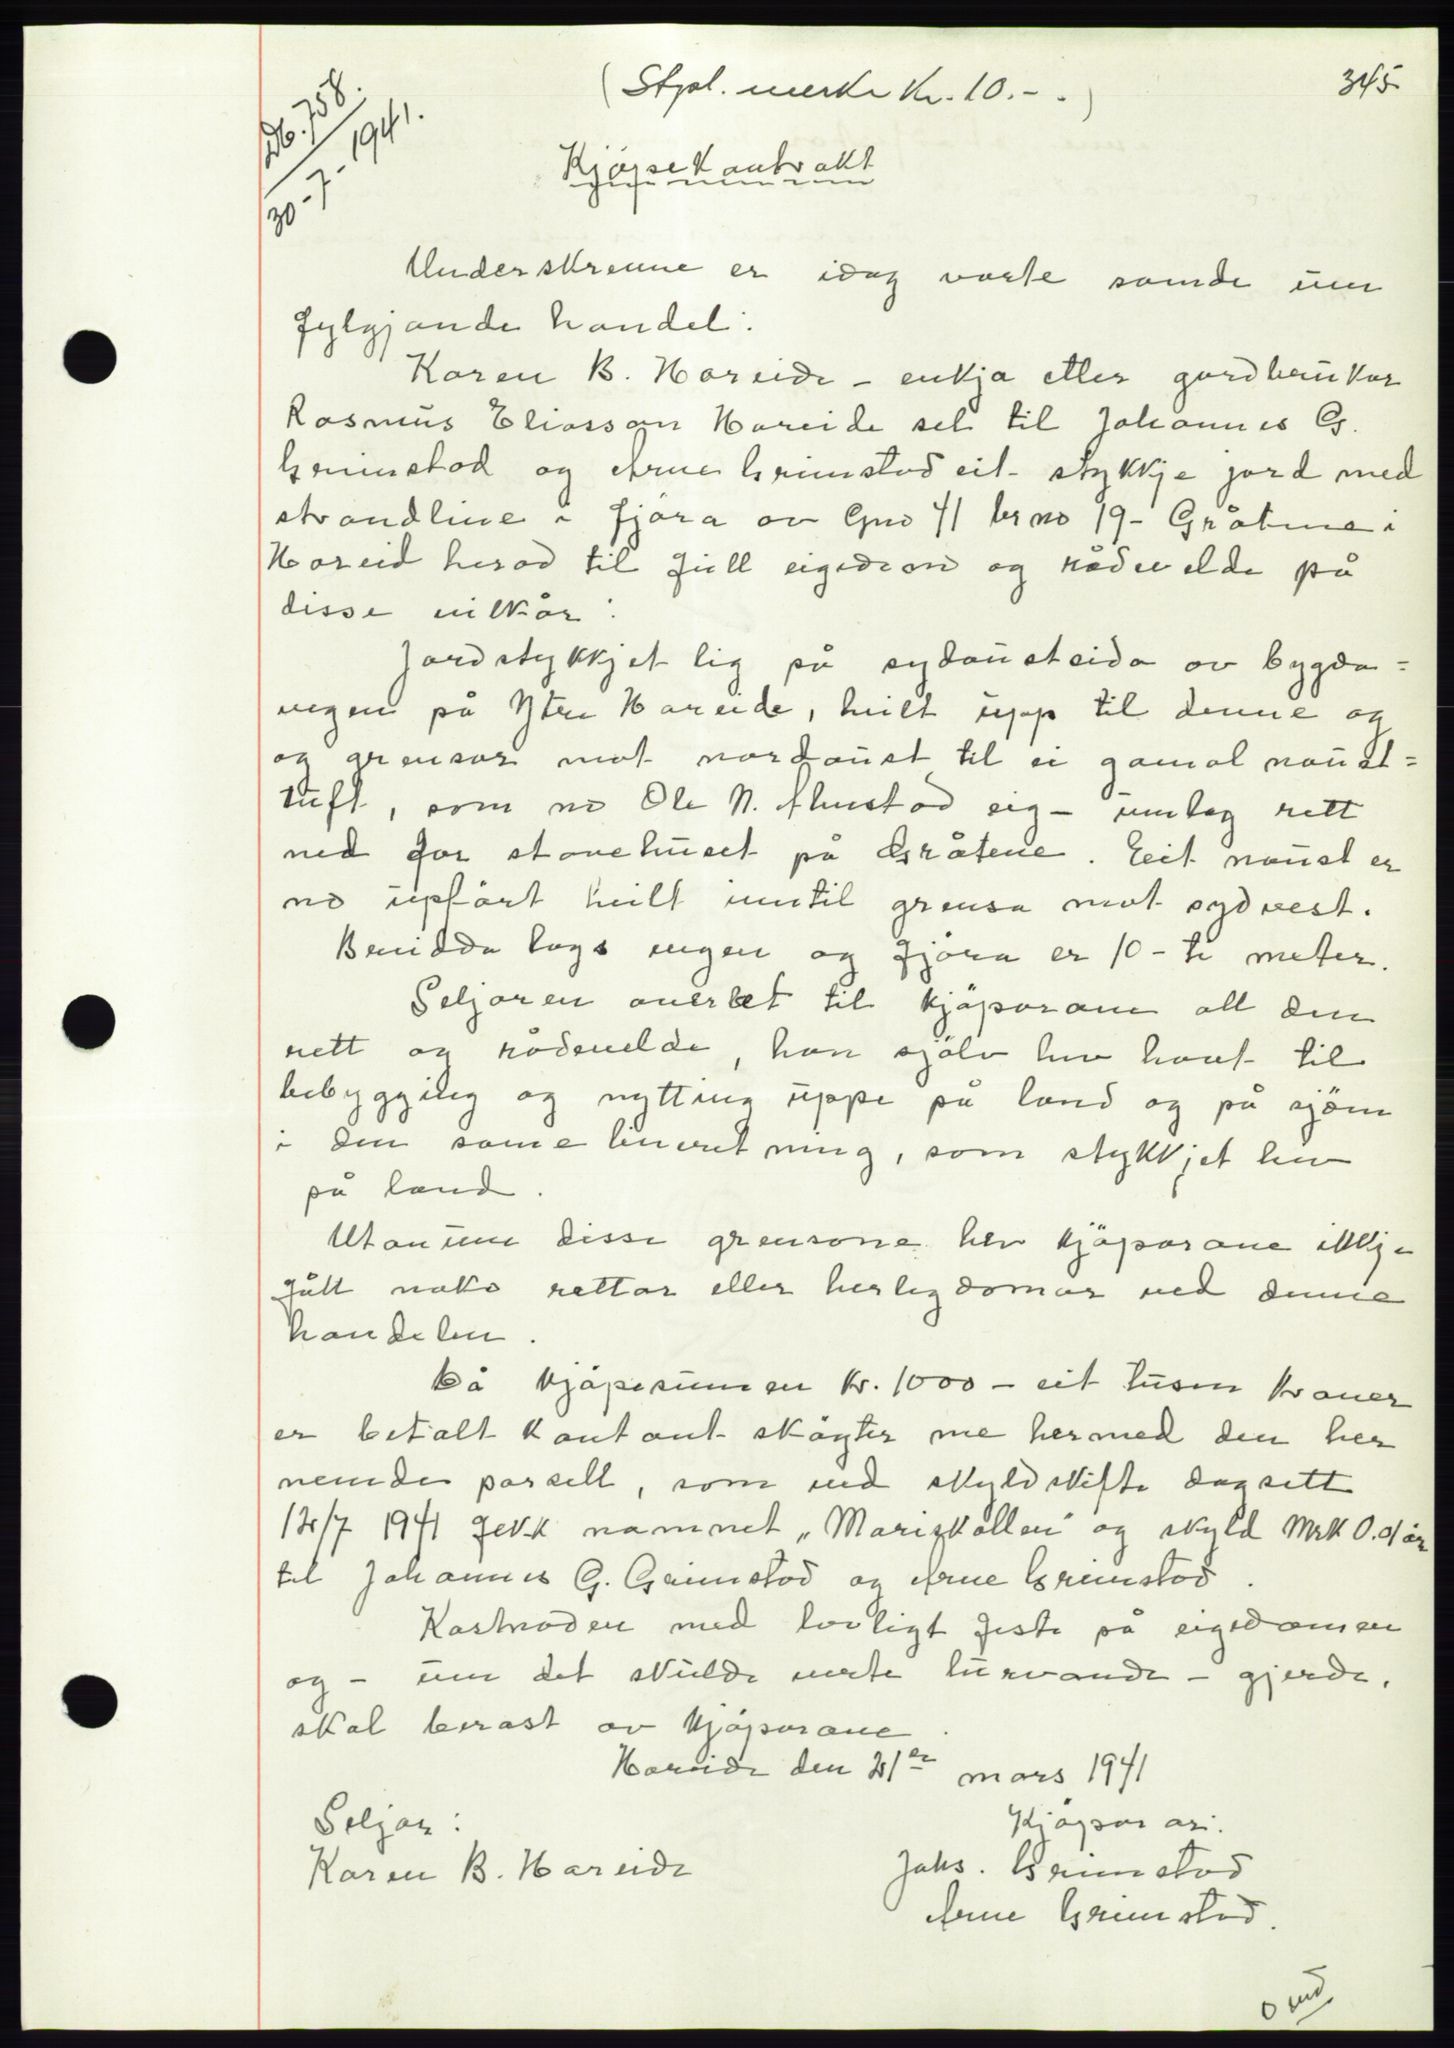 345
(Stpl. merke Kr. 10.-.)
Db. 758.
30-7-1941.
Kjöpsekontrakt
Underskrevne er idag vorte samde um
fylgjande handel:
Karen B. Hareide - enkja etter gardbrukar
Rasmus Eliasson Hareide sel til Johannes G.
Grimstad og Arne Grimstad eit stykkje jord med
strandline i fjöra av Gno 41 brno 19 - Gråtene i
Hareid herad til full eigedom og rådevelde på
disse vilkår:
Jordstykkjet lig på sydaustsida av bygda=
vegen på Ytre Hareide, heilt upp til denne og
og grensar mot nordaust til ei gamal naust=
tuft, som no Ole N. Alnestad eig - umlag rett
ned for stovehuset på Gråtene. Eit naust er
no uppfört heilt inntil grensa mot sydvest.
Breidda langs vegen og fjöra er 10 - ti meter.
Seljaren overlet til kjöparane all den
rett og rådevelde, han sjölv hev havt til
bebygging og nytting uppe på land og på sjöen
i den same lineretning, som stykkjet hev
på land.
Utanum disse grensone hev kjöparane ikkje
fått noko rettar eller herlegdomar ved denne
handelen.
Då kjöpesumen kr. 1000 - eit tusen kroner
er betalt kontant sköyter me hermed den her
nemde parsell, som ved skyldskifte dagsett
12/7 1941 fekk namnet „Marizkollen" og skyld Mrk 0.01 ör
til Johannes G. Grimstad og Arne Grimstad.
Kostnaden med lovligt feste på eigedomen
og - um det skulde verte turvande - gjerde,
skal berast av kjöparane.
Hareide den 21en mars 1941
Seljar:
Kjöparar:
Karen B. Hareide
Johs. Grimstad
Arne Grimstad.